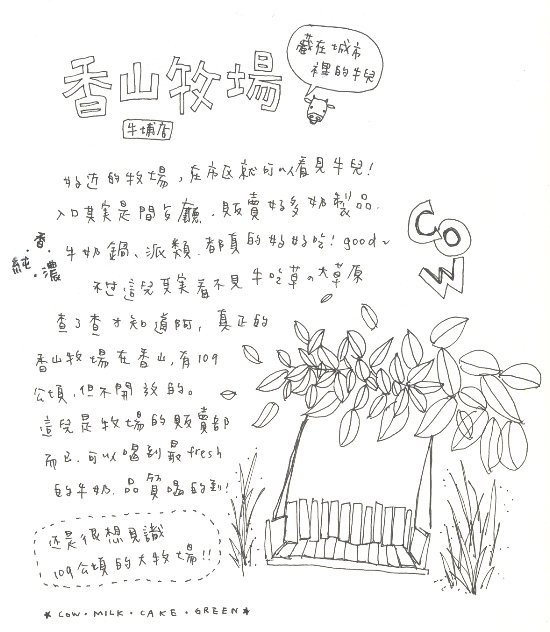 香山牧場
牛埔店
藏在城市
裡的牛兒
好近的牧場，在市區就可以看見牛兒！
入口其實是間餐廳，販賣好多奶製品.
香.純.濃
牛奶鍋、派類、都真的好好吃！good~
不過這兒其實看不見牛吃草の大草原
查了查才知道阿，真正的
香山牧場在香山，有109
公頃，但不開放的。
這兒是牧場的販賣部
而已，可以喝到最fresh
的牛奶，品質喝的到！
還是很想見識
109公頃的大牧場！！
COW
* COW · MILK · CAKE · GREEN *